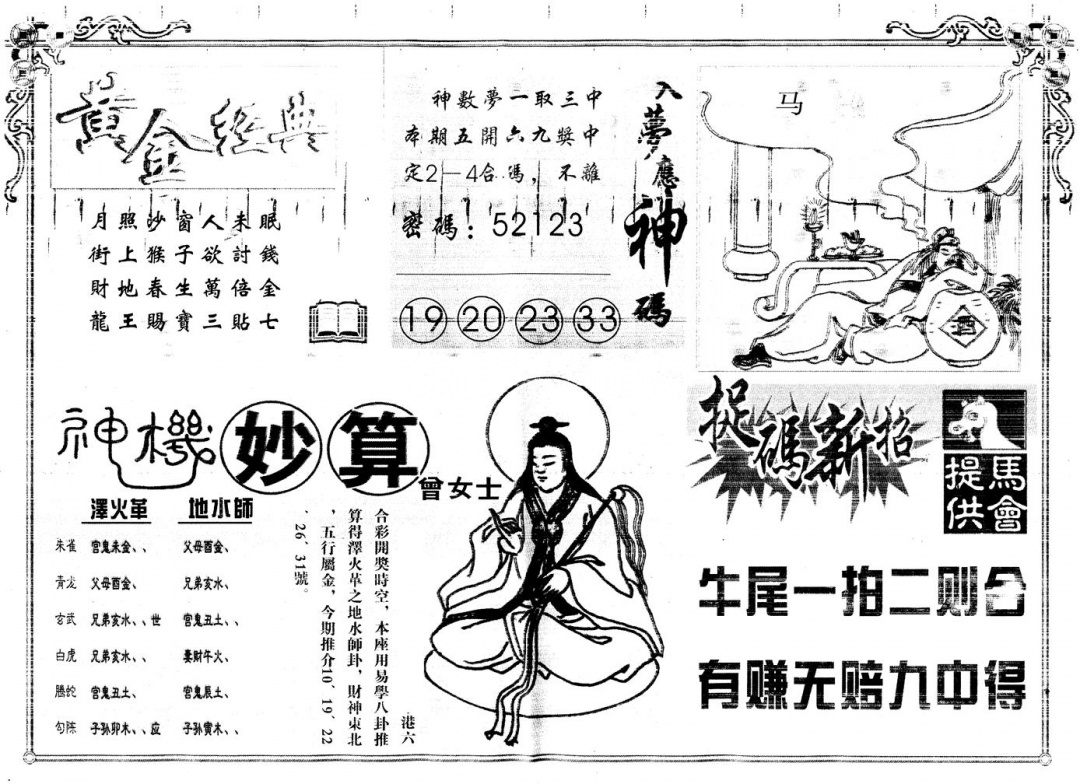 黃金經典
月照沙窗人未眠
街上猴子欲討錢
財地春生萬倍金
龍王賜寶三貼七
神數夢一取三中
本期五開六九獎中
定2—4合碼，不離
密碼：52123
19 20 23 33
入夢應神碼
马
酒
神機妙算
曾女士
澤火革 地水師
朱雀 官鬼未金、、 父母酉金、
青龙 父母酉金、 兄弟亥水、
玄武 兄弟亥水、、世 官鬼丑土、、
白虎 兄弟亥水、、 妻財午火、
騰蛇 官鬼丑土、 官鬼辰土、
勾陈 子孙卯木、、应 子孙寅木、、
港六
合彩開獎時空，本座用易學八卦推
算得澤火革之地水師卦，財神東北
，五行屬金，今期推介10、19、22
、26、31號。
捉碼新招
馬會
提供
牛尾一拍二则合
有赚无赔九中得